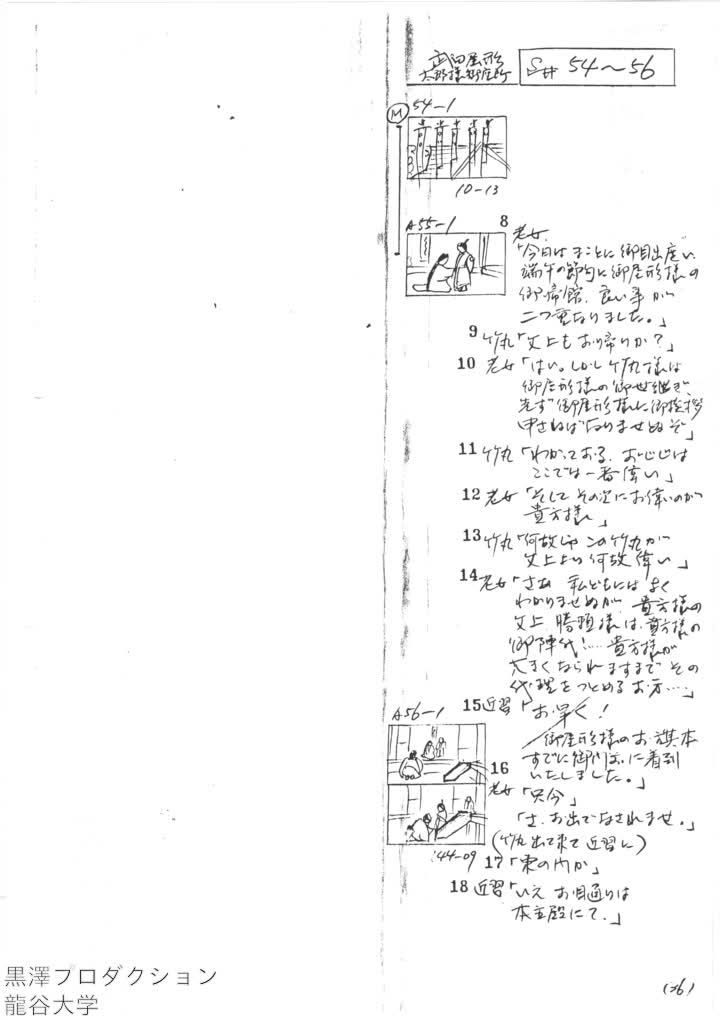 武田屋形
太郎様御座所
S# 54～56
M
54-1
10-13
A55-1
8 老女
「今日はまことに御目出度い
端午の節句に御屋形様の
御帰館、良い事が
二つ重なりました。」
9 竹丸「父上もお帰りか？」
10 老女「はい。しかし竹丸様は
御屋形様の御世継ぎ、
先ず御屋形様に御挨拶
申さねばなりませぬぞ」
11 竹丸「わかっておる、おじじは
ここでは一番偉い」
12 老女「そしてその次にお偉いのが
貴方様」
13 竹丸「何故じゃ この竹丸が
父上より何故偉い」
14 老女「さあ 私どもにはよく
わかりませぬが、貴方様の
父上 勝頼様は、貴方様の
御陣代！……貴方様が
大きくなられますまで その
代理をつとめるお方……」
A56-1
15 近習「お早く！
御屋形様のお旗本
すでに御門前に着到
いたしました。」
16 老女「只今」
「さ、お出でなされませ。」
(竹丸 出て来て 近習に)
44-09
17「東の門か」
18 近習「いえ お目通りは
本主殿にて。」
(26)
黒澤プロダクション
龍谷大学